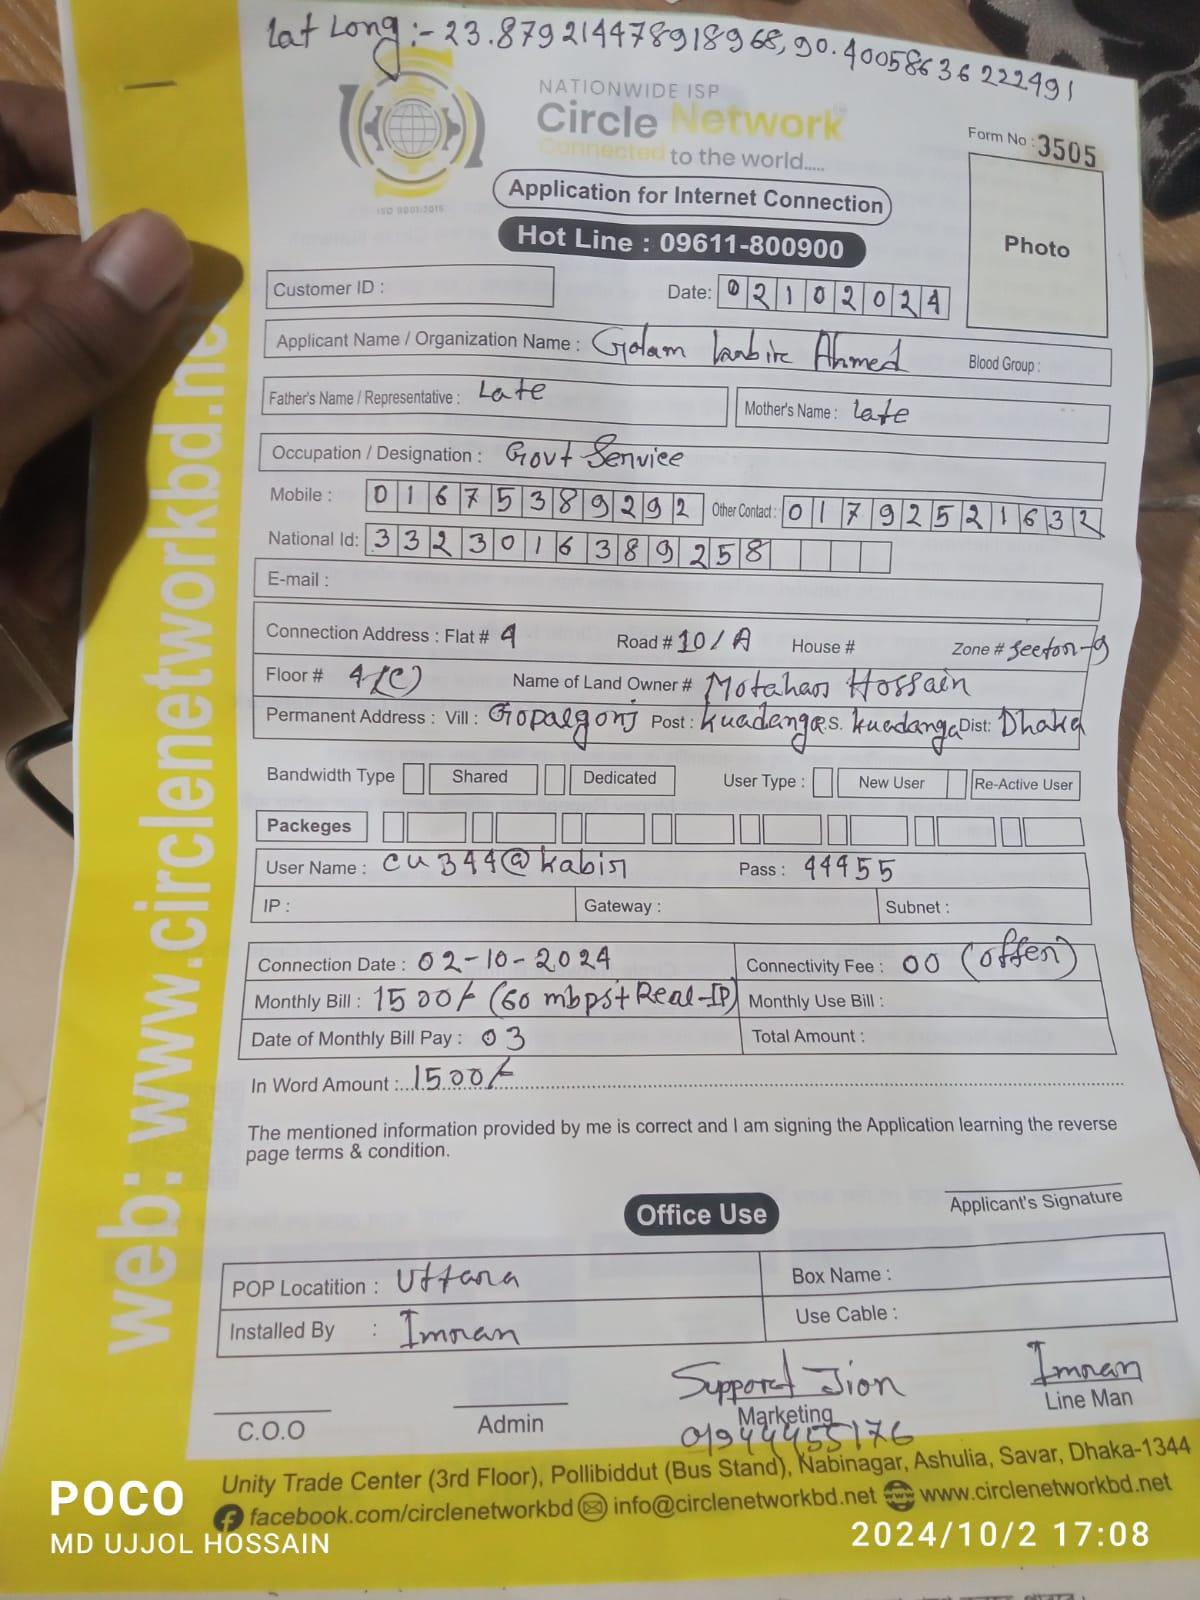 Lat Long :- 23.87921447891896​8, 90.40058636222491
NATIONWIDE ISP
Circle Network
Connected to the world.....
ISO 9001:2015
Form No : 3505
Application for Internet Connection
Hot Line : 09611-800900
Photo
Customer ID :
Date: 02102024
Applicant Name / Organization Name : Golam kabir Ahmed Blood Group :
Father's Name / Representative : Late Mother's Name : late
Occupation / Designation : Govt Service
Mobile : 01675389292 Other Contact : 01792521632
National Id: 3323016389258
E-mail :
Connection Address : Flat # 4 Road # 10/A House # Zone # Sector-9
Floor # 4(C) Name of Land Owner # Motahar Hossain
Permanent Address : Vill : Gopalgonj Post : kuadanga P.S. kuadanga Dist: Dhaka
Bandwidth Type Shared Dedicated User Type : New User Re-Active User
Packeges
User Name : cu344@kabir Pass : 44455
IP : Gateway : Subnet :
Connection Date : 02-10-2024 Connectivity Fee : 00 (offer)
Monthly Bill : 1500/- (60 mbps+Real-IP) Monthly Use Bill :
Date of Monthly Bill Pay : 03 Total Amount :
In Word Amount :...1500/-
The mentioned information provided by me is correct and I am signing the Application learning the reverse
page terms & condition.
Applicant's Signature
Office Use
POP Locatition : Uttara Box Name :
Installed By : Imran Use Cable :
Support Jion Imran
C.O.O Admin Marketing Line Man
01944455176
Unity Trade Center (3rd Floor), Pollibiddut (Bus Stand), Nabinagar, Ashulia, Savar, Dhaka-1344
facebook.com/circlenetworkbd info@circlenetworkbd.net www.circlenetworkbd.net
web: www.circlenetworkbd.net
POCO
MD UJJOL HOSSAIN
2024/10/2 17:08